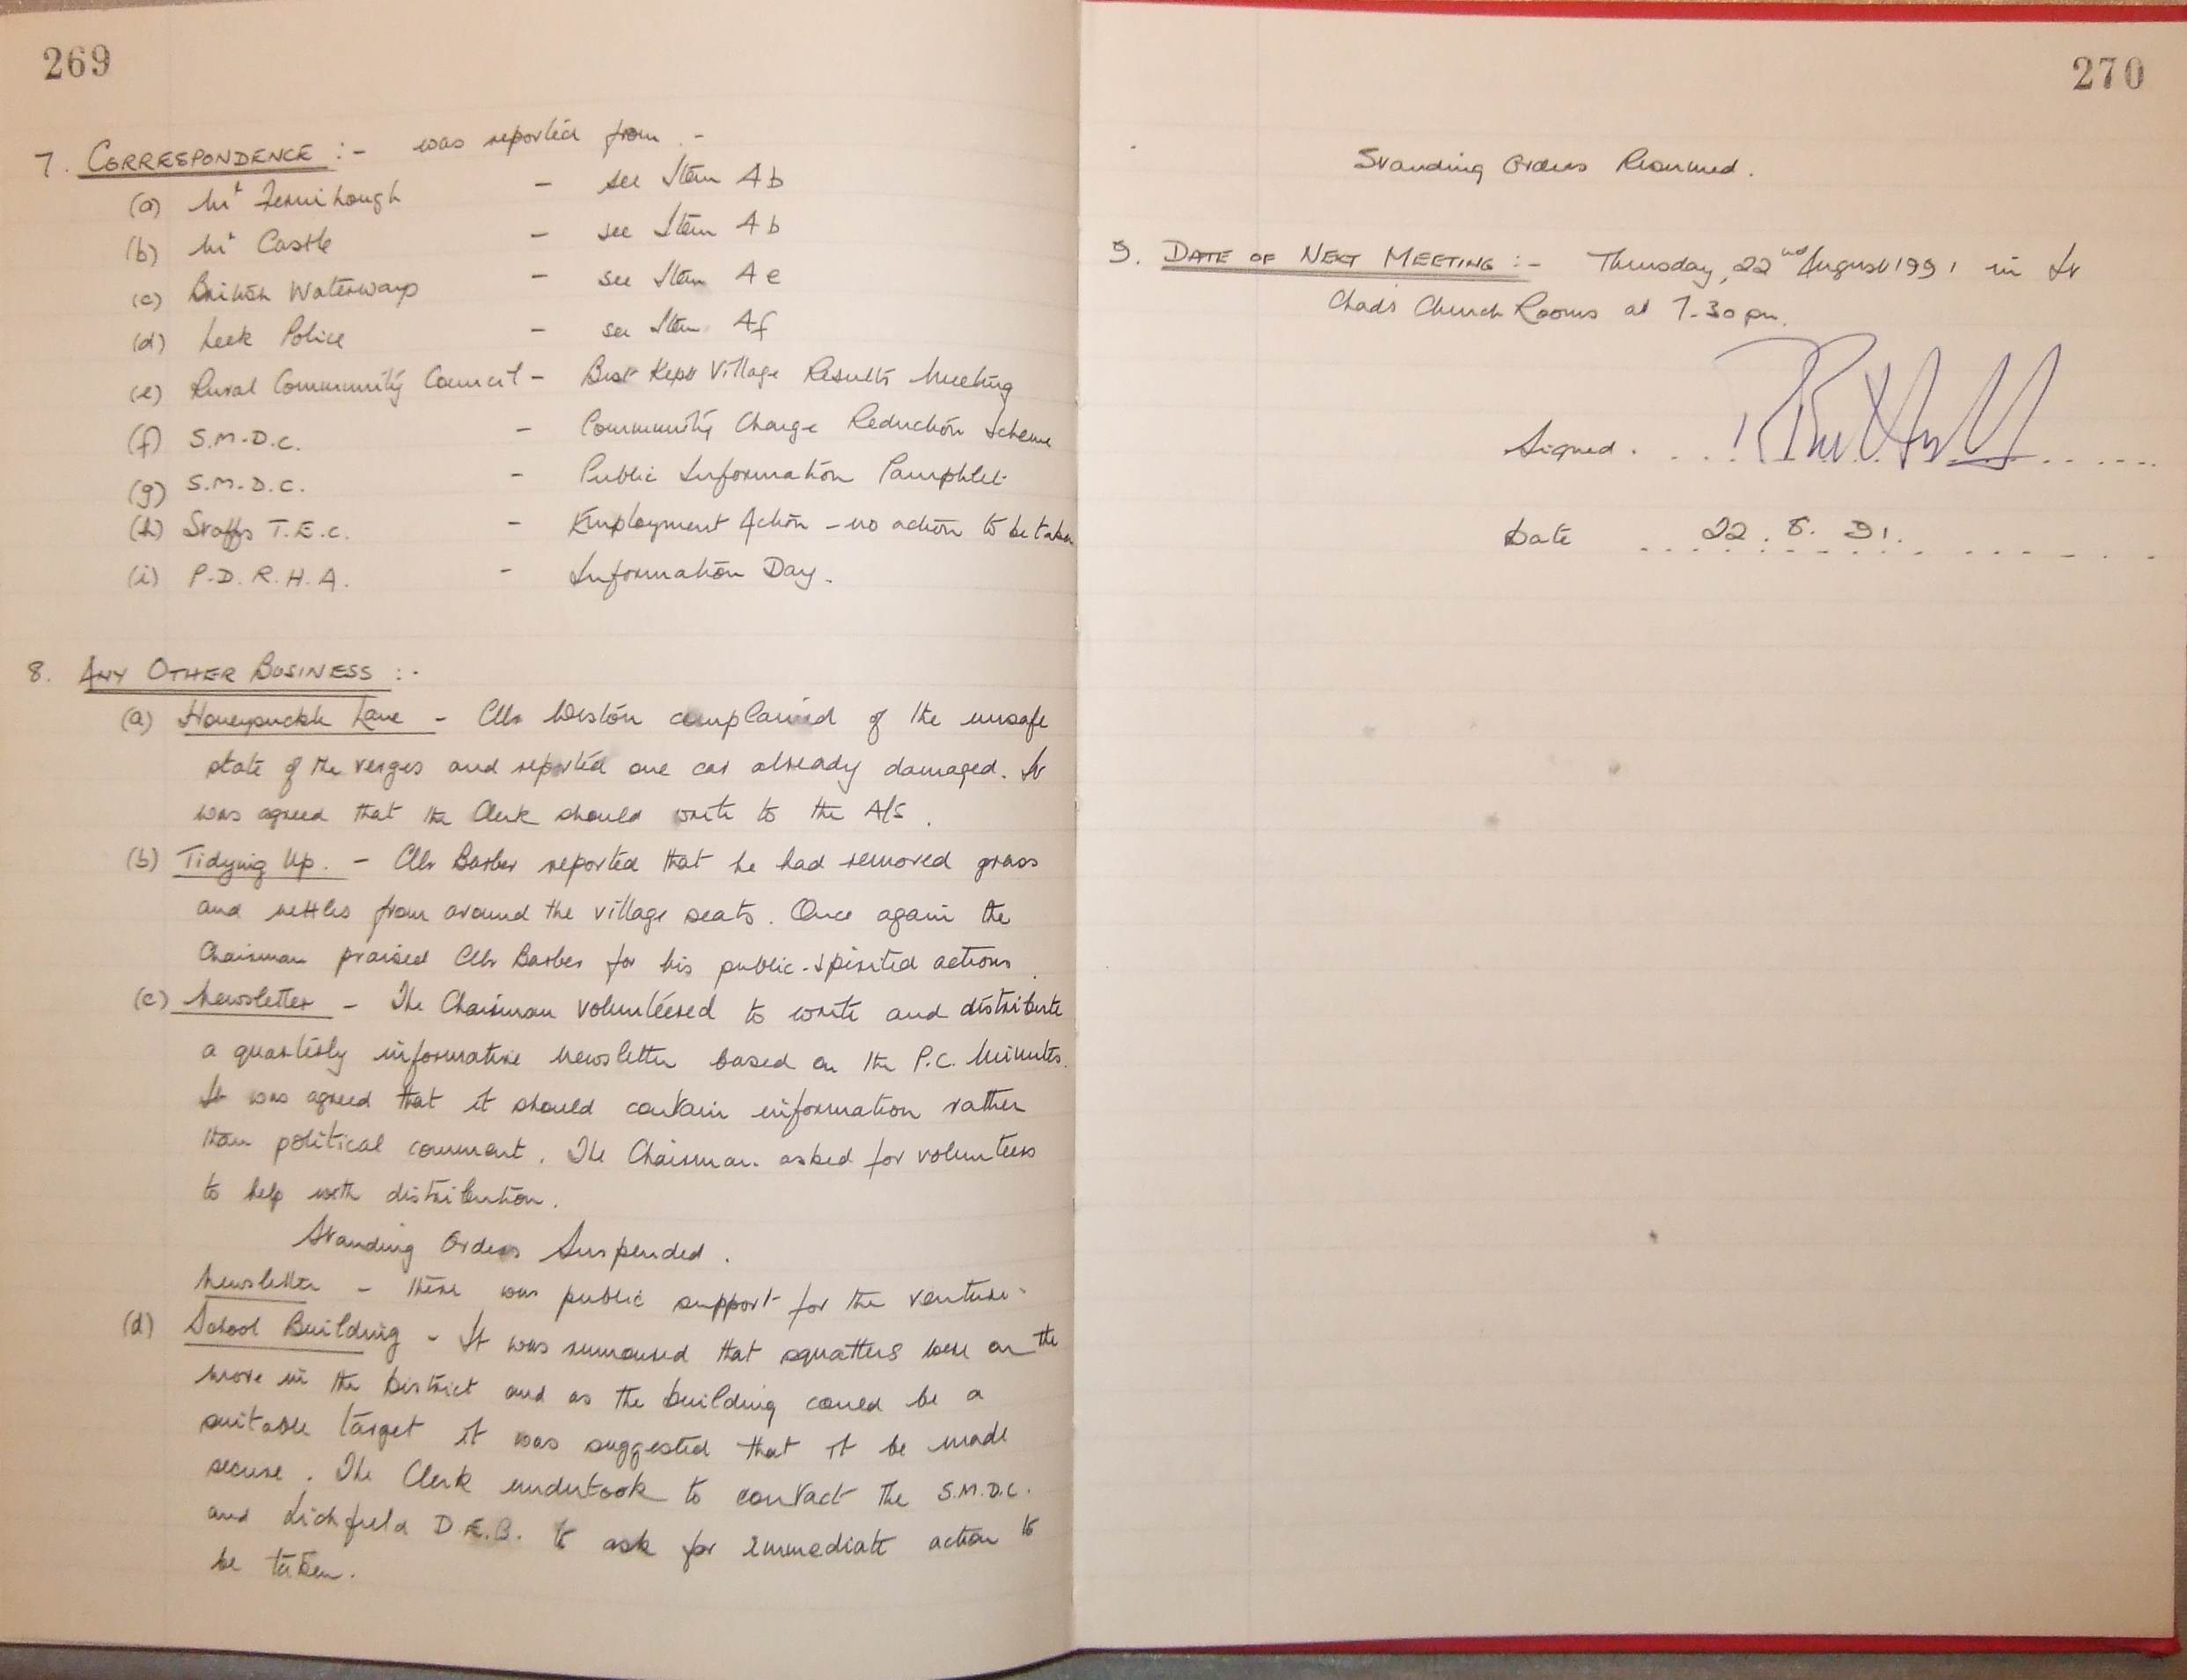 269
7. CORRESPONDENCE :- was reported from -
(a) Mr Fernihough - see Item 4b
(b) Mr Castle - see Item 4b
(c) British Waterways - see Item 4e
(d) Leek Police - see Item 4f
(e) Rural Community Council - Best Kept Village Results Meeting
(f) S.M.D.C. - Community Charge Reduction Scheme
(g) S.M.D.C. - Public Information Pamphlet
(h) Staffs T.E.C. - Employment Action - no action to be taken
(i) P.D.R.H.A. - Information Day.
8. ANY OTHER BUSINESS :-
(a) Honeysuckle Lane - Cllr Weston complained of the unsafe
state of the verges and reported one car already damaged. It
was agreed that the Clerk should write to the A/S.
(b) Tidying Up. - Cllr Barber reported that he had removed grass
and nettles from around the village seats. Once again the
Chairman praised Cllr Barber for his public-spirited actions.
(c) Newsletter - The Chairman volunteered to write and distribute
a quarterly informative newsletter based on the P.C. Minutes.
It was agreed that it should contain information rather
than political comment. The Chairman asked for volunteers
to help with distribution.
Standing Orders Suspended.
Newsletter - there was public support for the venture.
(d) School Building - It was rumoured that squatters were on the
move in the District and as the building could be a
suitable target it was suggested that it be made
secure. The Clerk undertook to contact the S.M.D.C.
and Lichfield D.E.B. to ask for immediate action to
be taken.
270
Standing Orders Resumed.
9. DATE OF NEXT MEETING :- Thursday, 22nd August 1991 in St
Chad's Church Rooms at 7.30pm.
Signed
Date 22.8.91.